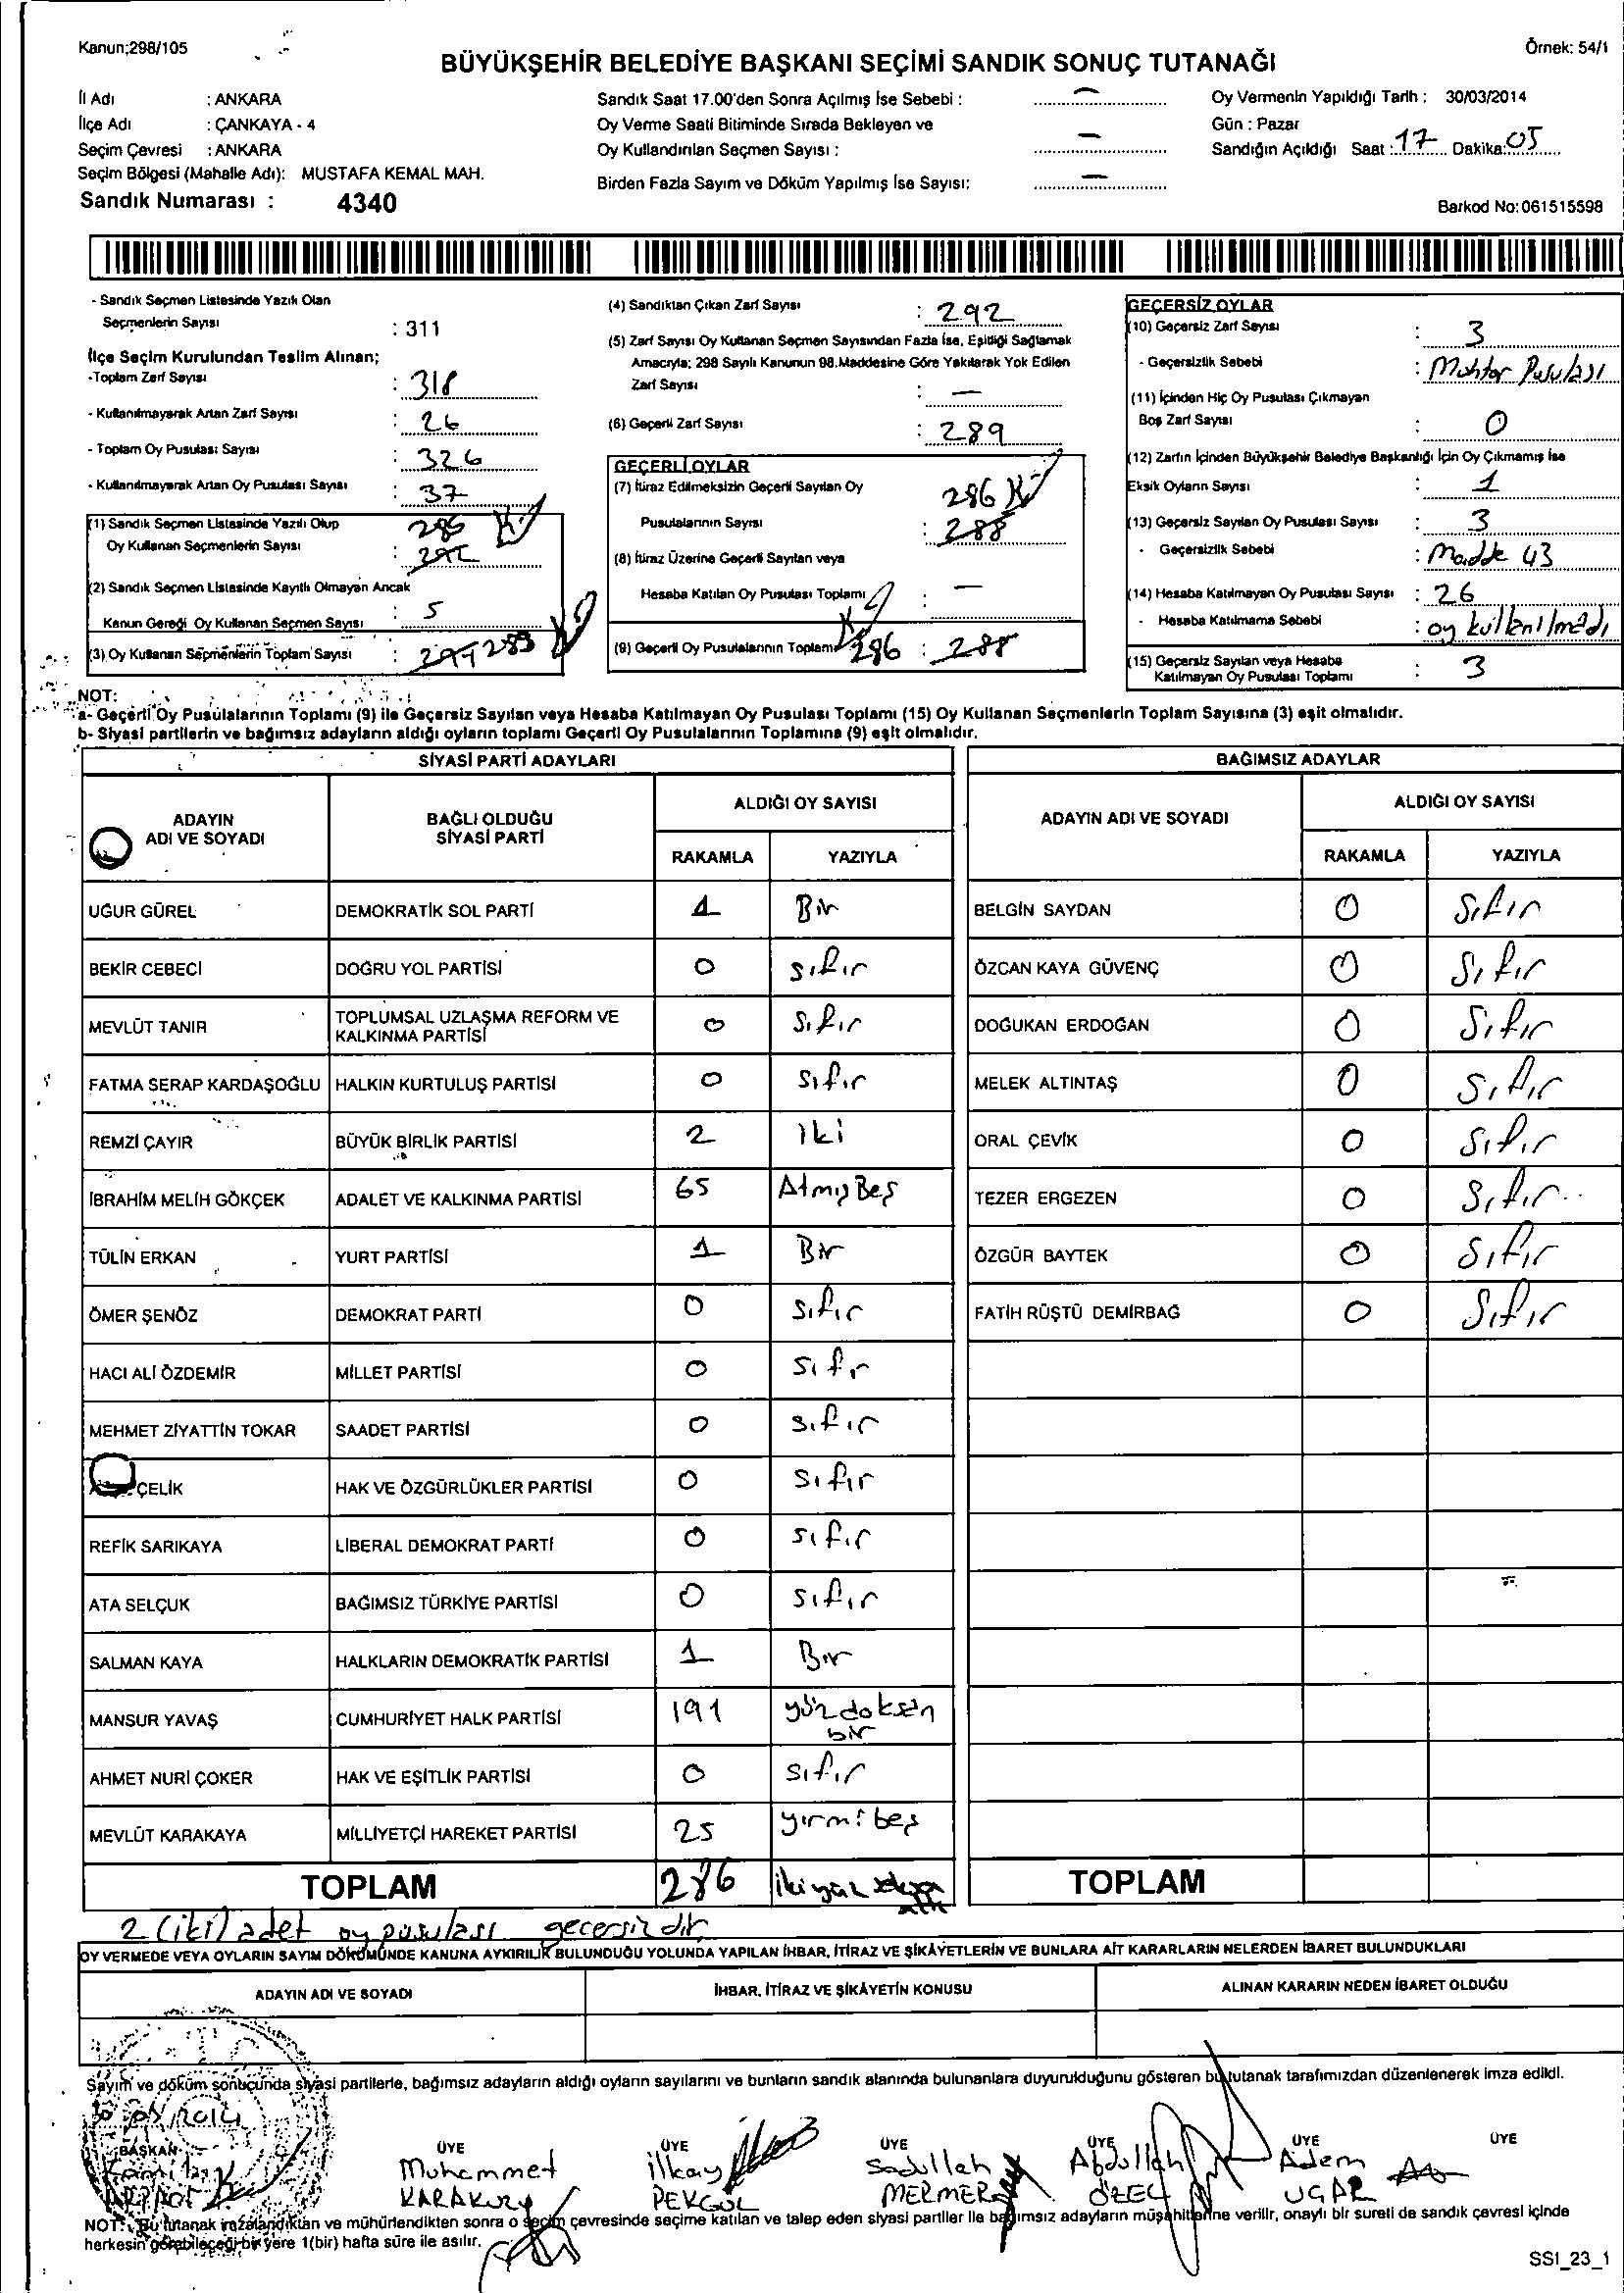 Kanun;298/105
Örnek: 54/1
BÜYÜKŞEHİR BELEDİYE BAŞKANI SEÇİMİ SANDIK SONUÇ TUTANAĞI
İl Adı : ANKARA
İlçe Adı : ÇANKAYA - 4
Seçim Çevresi : ANKARA
Seçim Bölgesi (Mahalle Adı): MUSTAFA KEMAL MAH.
Sandık Numarası : 4340
Sandık Saat 17.00'den Sonra Açılmış İse Sebebi : —
Oy Verme Saati Bitiminde Sırada Bekleyen ve
Oy Kullandırılan Seçmen Sayısı : —
Birden Fazla Sayım ve Döküm Yapılmış İse Sayısı: —
Oy Vermenin Yapıldığı Tarih : 30/03/2014
Gün : Pazar
Sandığın Açıldığı Saat : 17 Dakika: 05
Barkod No:061515598
- Sandık Seçmen Listesinde Yazılı Olan
Seçmenlerin Sayısı : 311
İlçe Seçim Kurulundan Teslim Alınan;
-Toplam Zarf Sayısı : 318
- Kullanılmayarak Artan Zarf Sayısı : 26
- Toplam Oy Pusulası Sayısı : 326
- Kullanılmayarak Artan Oy Pusulası Sayısı : 37
(1) Sandık Seçmen Listesinde Yazılı Olup
Oy Kullanan Seçmenlerin Sayısı :
(2) Sandık Seçmen Listesinde Kayıtlı Olmayan Ancak
Kanun Gereği Oy Kullanan Seçmen Sayısı : 5
(3) Oy Kullanan Seçmenlerin Toplam Sayısı : 289
(4) Sandıktan Çıkan Zarf Sayısı : 292
(5) Zarf Sayısı Oy Kullanan Seçmen Sayısından Fazla İse, Eşitliği Sağlamak
Amacıyla; 298 Sayılı Kanunun 98.Maddesine Göre Yakılarak Yok Edilen
Zarf Sayısı : —
(6) Geçerli Zarf Sayısı : 289
GEÇERLİ OYLAR
(7) İtiraz Edilmeksizin Geçerli Sayılan Oy
Pusulalarının Sayısı : 286 288
(8) İtiraz Üzerine Geçerli Sayılan veya
Hesaba Katılan Oy Pusulası Toplamı : —
(9) Geçerli Oy Pusulalarının Toplamı 286 : 288
GEÇERSİZ OYLAR
(10) Geçersiz Zarf Sayısı : 3
- Geçersizlik Sebebi : Muhtar Pusulası
(11) İçinden Hiç Oy Pusulası Çıkmayan
Boş Zarf Sayısı : 0
(12) Zarfın İçinden Büyükşehir Belediye Başkanlığı İçin Oy Çıkmamış İse
Eksik Oyların Sayısı : 1
(13) Geçersiz Sayılan Oy Pusulası Sayısı : 3
- Geçersizlik Sebebi : Madde 43
(14) Hesaba Katılmayan Oy Pusulası Sayısı : 26
- Hesaba Katılmama Sebebi : oy kullanılmadı
(15) Geçersiz Sayılan veya Hesaba
Katılmayan Oy Pusulası Toplamı : 3
NOT:
a- Geçerli Oy Pusulalarının Toplamı (9) ile Geçersiz Sayılan veya Hesaba Katılmayan Oy Pusulası Toplamı (15) Oy Kullanan Seçmenlerin Toplam Sayısına (3) eşit olmalıdır.
b- Siyasi partilerin ve bağımsız adayların aldığı oyların toplamı Geçerli Oy Pusulalarının Toplamına (9) eşit olmalıdır.
SİYASİ PARTİ ADAYLARI
ADAYIN
ADI VE SOYADI
BAĞLI OLDUĞU
SİYASİ PARTİ
ALDIĞI OY SAYISI
RAKAMLA YAZIYLA
UĞUR GÜREL DEMOKRATİK SOL PARTİ 1 Bir
BEKİR CEBECİ DOĞRU YOL PARTİSİ 0 sıfır
MEVLÜT TANIR TOPLUMSAL UZLAŞMA REFORM VE
KALKINMA PARTİSİ 0 sıfır
FATMA SERAP KARDAŞOĞLU HALKIN KURTULUŞ PARTİSİ 0 sıfır
REMZİ ÇAYIR BÜYÜK BİRLİK PARTİSİ 2 iki
İBRAHİM MELİH GÖKÇEK ADALET VE KALKINMA PARTİSİ 65 Atmış Beş
TÜLİN ERKAN YURT PARTİSİ 1 Bir
ÖMER ŞENÖZ DEMOKRAT PARTİ 0 sıfır
HACI ALİ ÖZDEMİR MİLLET PARTİSİ 0 sıfr
MEHMET ZİYATTİN TOKAR SAADET PARTİSİ 0 sıfır
ÇELİK HAK VE ÖZGÜRLÜKLER PARTİSİ 0 sıfır
REFİK SARIKAYA LİBERAL DEMOKRAT PARTİ 0 sıfır
ATA SELÇUK BAĞIMSIZ TÜRKİYE PARTİSİ 0 sıfır
SALMAN KAYA HALKLARIN DEMOKRATİK PARTİSİ 1 Bir
MANSUR YAVAŞ CUMHURİYET HALK PARTİSİ 191 yüz doksan
bir
AHMET NURİ ÇOKER HAK VE EŞİTLİK PARTİSİ 0 sıfır
MEVLÜT KARAKAYA MİLLİYETÇİ HAREKET PARTİSİ 25 yirmi beş
TOPLAM 286 ikiyüz
BAĞIMSIZ ADAYLAR
ADAYIN ADI VE SOYADI
ALDIĞI OY SAYISI
RAKAMLA YAZIYLA
BELGİN SAYDAN 0 Sıfır
ÖZCAN KAYA GÜVENÇ 0 Sıfır
DOĞUKAN ERDOĞAN 0 Sıfır
MELEK ALTINTAŞ 0 Sıfır
ORAL ÇEVİK 0 Sıfır
TEZER ERGEZEN 0 Sıfır
ÖZGÜR BAYTEK 0 Sıfır
FATİH RÜŞTÜ DEMİRBAĞ 0 Sıfır
TOPLAM
2 (iki) adet oy pusulası geçersizdir.
OY VERMEDE VEYA OYLARIN SAYIM DÖKÜMÜNDE KANUNA AYKIRILIK BULUNDUĞU YOLUNDA YAPILAN İHBAR, İTİRAZ VE ŞİKÂYETLERİN VE BUNLARA AİT KARARLARIN NELERDEN İBARET BULUNDUKLARI
ADAYIN ADI VE SOYADI
İHBAR, İTİRAZ VE ŞİKÂYETİN KONUSU
ALINAN KARARIN NEDEN İBARET OLDUĞU
Sayım ve döküm sonucunda siyasi partilerle, bağımsız adayların aldığı oyların sayılarını ve bunların sandık alanında bulunanlara duyurulduğunu gösteren bu tutanak tarafımızdan düzenlenerek imza edildi.
BAŞKAN
ÜYE
Muhammet
KARAKUZU
ÜYE
İlkay
PEKGÜL
ÜYE
Sadullah
MERMER
ÜYE
Abdullah
ÖZEL
ÜYE
Adem
UÇAR
ÜYE
NOT: Bu tutanak imzalandıktan ve mühürlendikten sonra o seçim çevresinde seçime katılan ve talep eden siyasi partiler ile bağımsız adayların müşahitlerine verilir, onaylı bir sureti de sandık çevresi içinde
herkesin görebileceği bir yere 1(bir) hafta süre ile asılır.
SSI_23_1